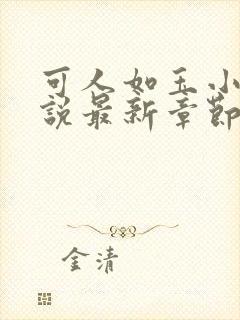 可人如玉小
說最新章節
金清